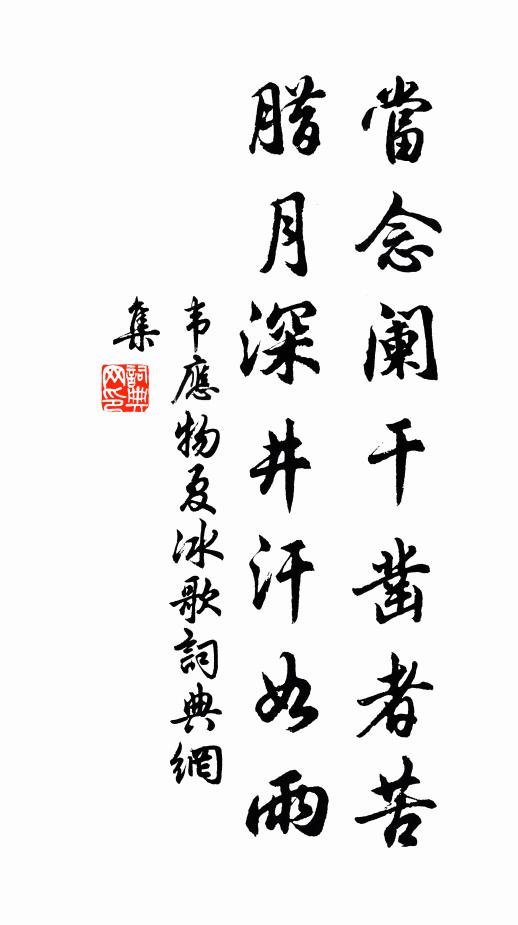 當念阑干凿者苦
腊月深井汗如雨
韦應物夏冰歌詞典網
集
詞典
网印